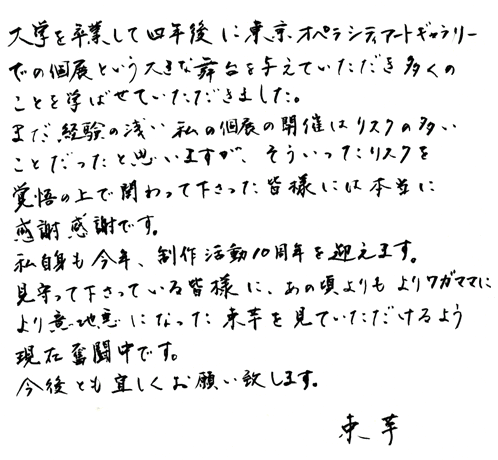 大学を卒業して四年後に東京オペラシティアートギャラリー
での個展という大きな舞台を与えていただき多くの
ことを学ばせていただきました。
まだ経験の浅い私の個展の開催はリスクの多い
ことだったと思いますが、そういったリスクを
覚悟の上で関わって下さった皆様には本当に
感謝感謝です。
私自身も今年、制作活動10周年を迎えます。
見守って下さっている皆様に、あの頃よりもよりワガママに
より意地悪になった束芋を見ていただけるよう
現在奮闘中です。
今後とも宜しくお願い致します。
束芋